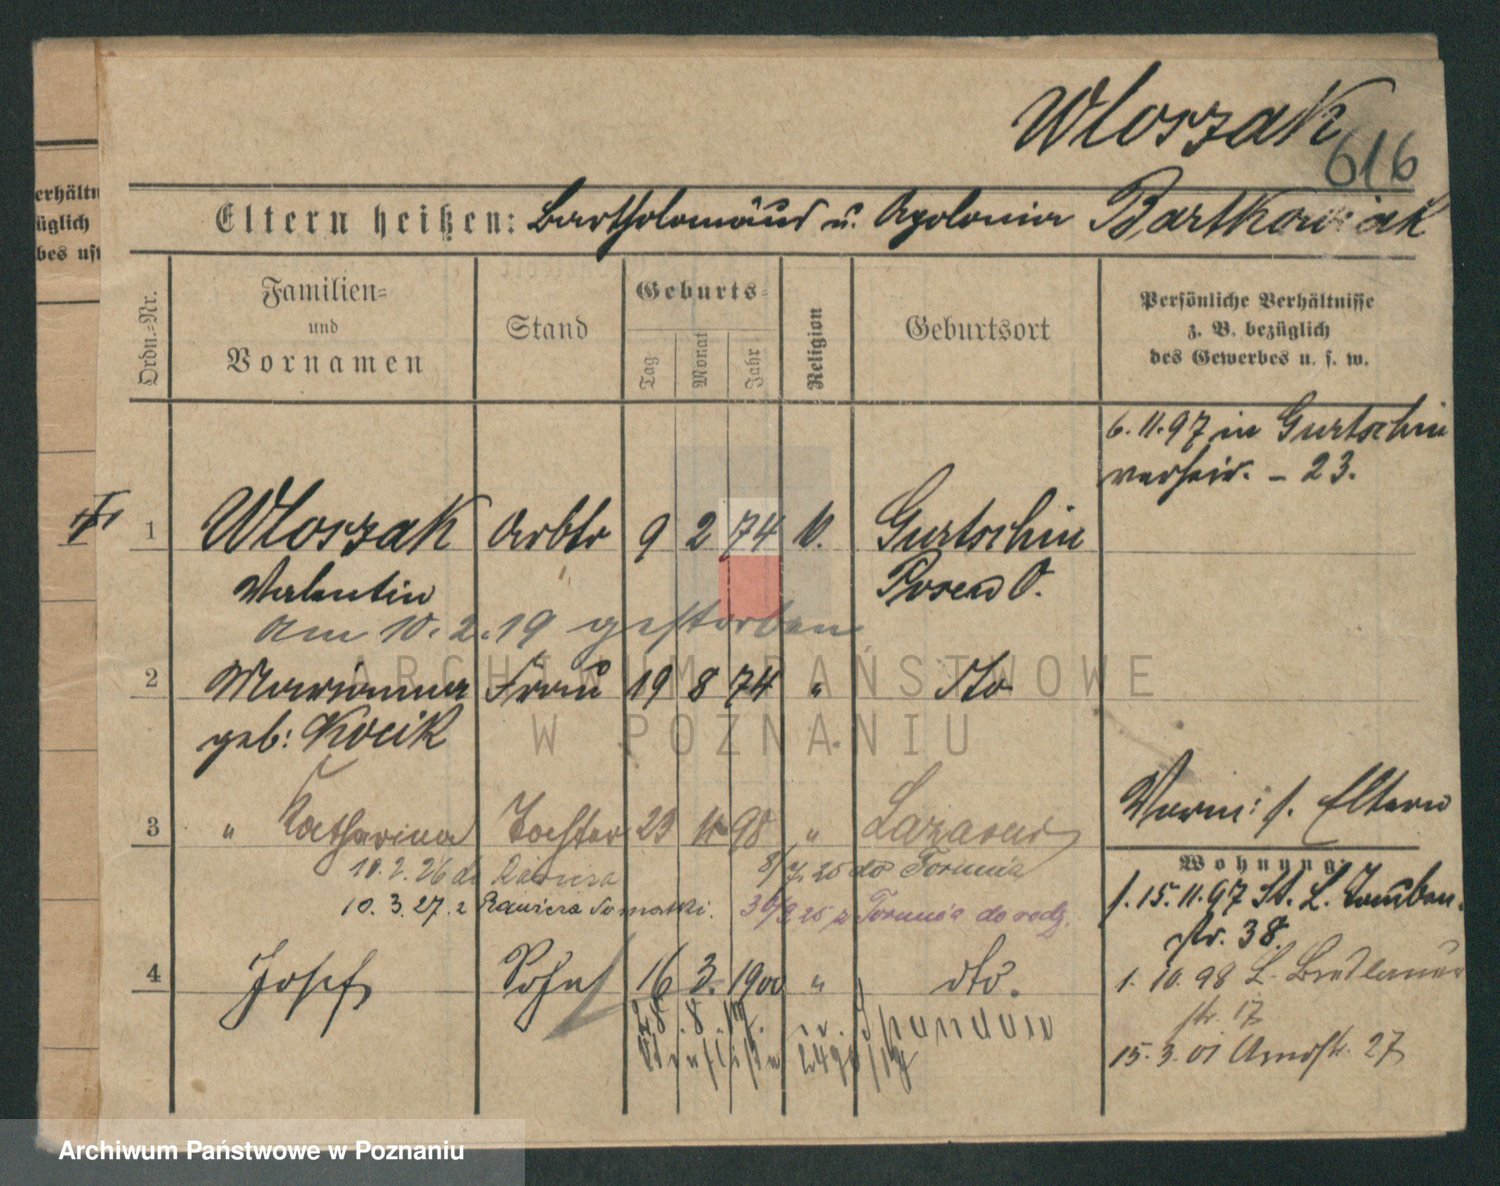 Wloszak
616
Eltern heißen: Bartholomäus u. Apolonia Bartkowiak
Ordn.-Nr.
Familien-
und
Vornamen
Stand
Geburts-
Tag
Monat
Jahr
Religion
Geburtsort
Persönliche Verhältnisse
z. B. bezüglich
des Gewerbes u. s. w.
erhältn
üglich
bes uſt
6.11.97 in Gurtschin
verheir. - 23.
1 Wloszak Arbtr 9 2 74 Gurtschin
Valentin Posen O.
am 10.2.19 gestorben
2 Marianna Frau 19 8 74 " dto
geb: Kocik
3 " Katharina Tochter 23 11 98 " Lazarus
Verm: s. Eltern
Wohnung:
10.2.26 do Rawicza 25 do Torunia
10.3.27. z Rawicza 25 z Torunia do rodz.
s. 15.11.97 St. L.
str. 38.
4 Josef Sohn 16 3. 1900 " dto.
1. 10.98 L. Breslauer
str. 17
28.8.19. Spandau
15.3.01 Arndtstr. 27
ARCHIWUM PAŃSTWOWE
W POZNANIU
Archiwum Państwowe w Poznaniu